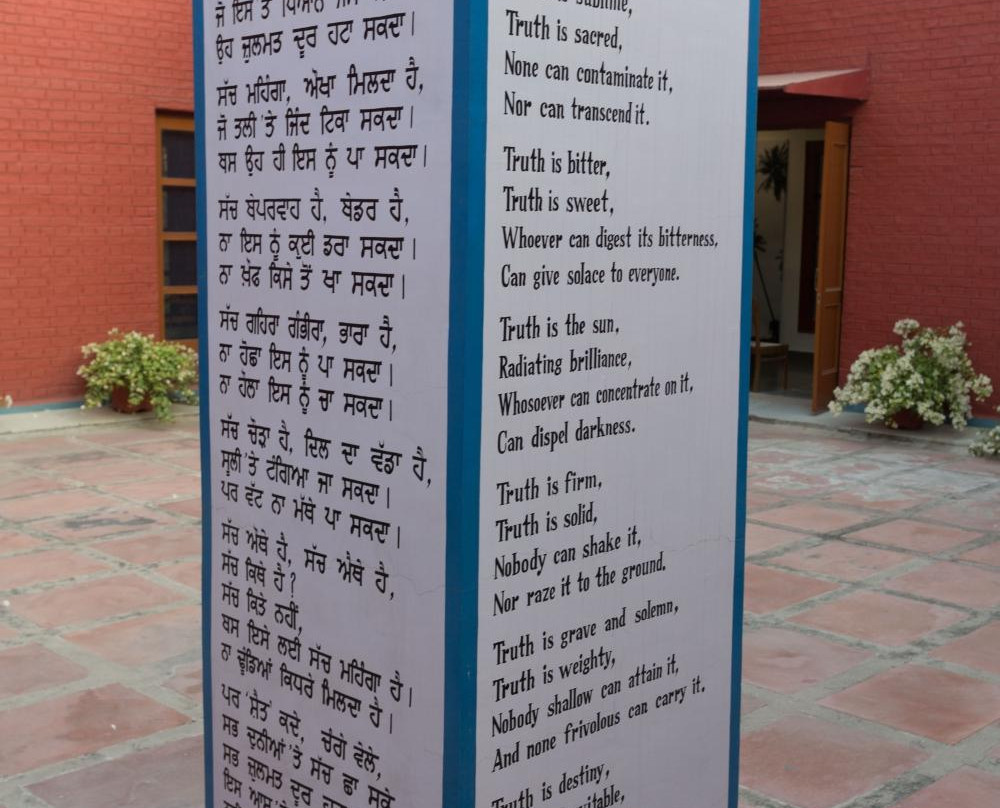 ਜੋ ਇਸ ਤੋਂ
ਉਹ ਜ਼ੁਲਮਤ ਦੂਰ ਹਟਾ ਸਕਦਾ।
ਸੱਚ ਮਹਿੰਗਾ, ਔਖਾ ਮਿਲਦਾ ਹੈ,
ਜੋ ਤਲੀ 'ਤੇ ਜਿੰਦ ਟਿਕਾ ਸਕਦਾ।
ਬਸ ਉਹ ਹੀ ਇਸ ਨੂੰ ਪਾ ਸਕਦਾ।
ਸੱਚ ਬੇਪਰਵਾਹ ਹੈ, ਬੇਡਰ ਹੈ,
ਨਾ ਇਸ ਨੂੰ ਕੁਈ ਡਰਾ ਸਕਦਾ।
ਨਾ ਖ਼ੌਫ ਕਿਸੇ ਤੋਂ ਖਾ ਸਕਦਾ।
ਸੱਚ ਗਹਿਰਾ ਗੰਭੀਰਾ, ਭਾਰਾ ਹੈ,
ਨਾ ਹੋਛਾ ਇਸ ਨੂੰ ਪਾ ਸਕਦਾ।
ਨਾ ਹੌਲਾ ਇਸ ਨੂੰ ਚਾ ਸਕਦਾ।
ਸੱਚ ਚੌੜਾ ਹੈ, ਦਿਲ ਦਾ ਵੱਡਾ ਹੈ,
ਸੂਲੀ 'ਤੇ ਟੰਗਿਆ ਜਾ ਸਕਦਾ।
ਪਰ ਵੱਟ ਨਾ ਮੱਥੇ ਪਾ ਸਕਦਾ।
ਸੱਚ ਐਥੇ ਹੈ, ਸੱਚ ਔਥੇ ਹੈ,
ਸੱਚ ਕਿਥੇ ਹੈ?
ਸੱਚ ਕਿਤੇ ਨਹੀਂ,
ਬਸ ਇਸੇ ਲਈ ਸੱਚ ਮਹਿੰਗਾ ਹੈ।
ਨਾ ਢੂੰਡਿਆਂ ਕਿਧਰੇ ਮਿਲਦਾ ਹੈ।
ਪਰ ਕਦੇ, ਚੰਗੇ ਵੇਲੇ,
ਸਭ ਦੁਨੀਆਂ 'ਤੇ ਸੱਚ ਛਾ ਸਕੇ
ਸਭ ਜ਼ੁਲਮਤ ਦੂਰ
ਇਸ
sublime,
Truth is sacred,
None can contaminate it,
Nor can transcend it.
Truth is bitter,
Truth is sweet,
Whoever can digest its bitterness,
Can give solace to everyone.
Truth is the sun,
Radiating brilliance,
Whosoever can concentrate on it,
Can dispel darkness.
Truth is firm,
Truth is solid,
Nobody can shake it,
Nor raze it to the ground.
Truth is grave and solemn,
Truth is weighty,
Nobody shallow can attain it,
And none frivolous can carry it.
Truth is destiny,